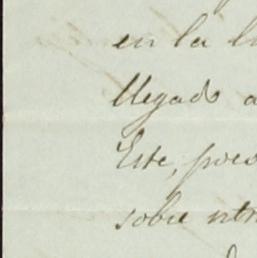 en la
llegado a
Este, pues
sobre